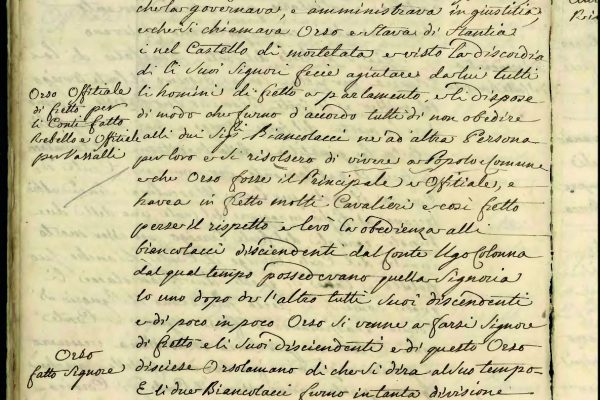 che la governava, e amministrava in giustitia,
e che si chiamava Orso e stava di stantia
i nel Castello di mortetata e visto la discordia
di li suoi Signori fecie agiutare da lui tutti
li homini di fretto a parlamento, e li dispose
di modo che furno d'accordo tutti di non obedire
alli dui Sig.ri Biancolacci ne ad altra Persona
per loro e si risolsero di vivere a Popolo e Comune
e che Orso fosse il Principale e Offitiale, e
havea in fretto molti Cavalieri e cosi fretto
perse il rispetto e levò la obedienza alli
biancolacci disciendenti dal Conte Ugo Colonna
dal qual tempo possedevano quella Signoria
lo uno dopo de l'altro tutti suoi discendenti
e di poco in poco Orso si venne a farsi Signore
di fretto e li suoi disciendenti e di questo Orso
disciese Orsolamano di che si dira al suo tempo-
E li due Biancolacci furno in tanta divisione
Orso Offitiale
di fretto per
li Conti fatto
Rebello e Offitiale
per Vassalli
Orso
fatto Signore